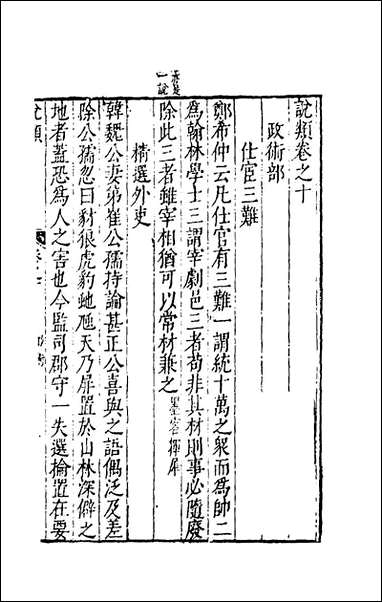 說類卷之十
政術部
仕宦三難
鄭希仲云凡仕官有三難一謂統十萬之衆而爲帥二
爲翰林學士三謂宰劇邑三者苟非其材則事必隨廢
除此三者雖宰相猶可以常材兼之墨客揮犀
精選外吏
韓魏公妻弟崔公孺持論甚正公喜與之語偶泛及差
除公孺忽曰豺狼虎豹虵虺天乃屏置於山林深僻之
地者蓋恐爲人之害也今監司郡守一失選掄置在要
說類
一說